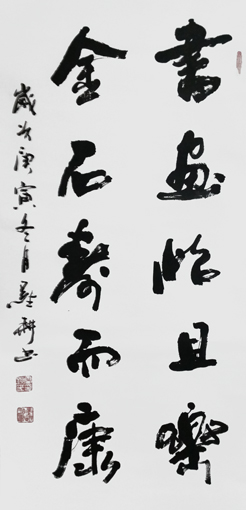 書畫怡且樂
金石壽而康
歲次庚寅冬月